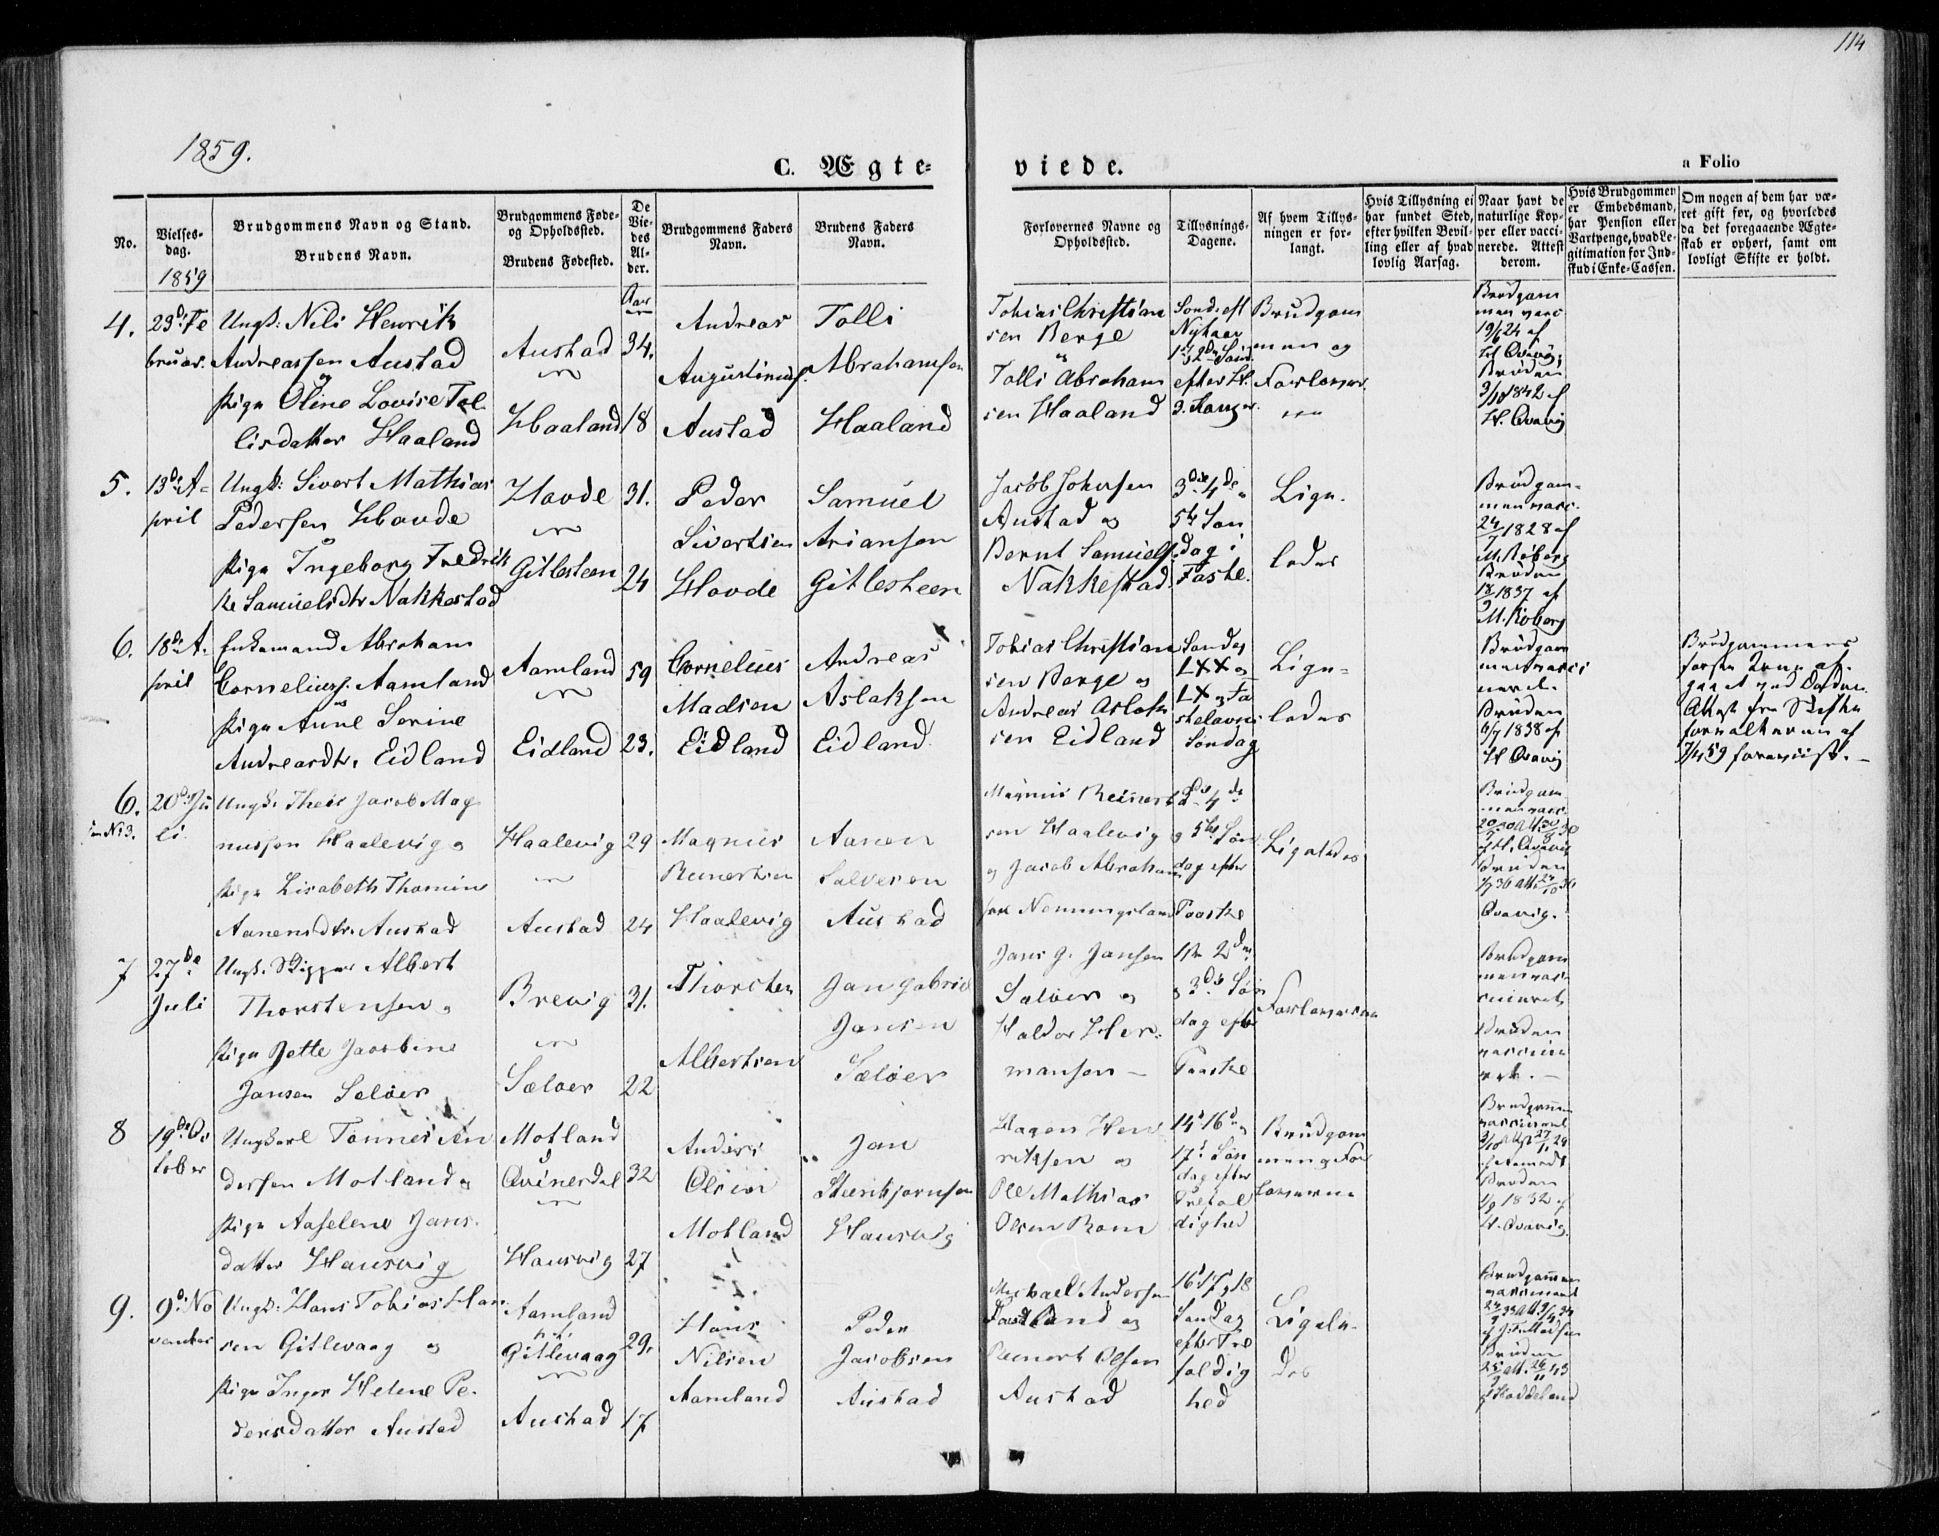 114
1859.
C. Ægte-
viede.
a Folio
No.
Vielses-
dag.
1859
Brudgommens Navn og Stand.
Brudens Navn.
Brudgommens Føde-
og Opholdssted.
Brudens Fødested.
De
Vie-
des
Al-
der.
Aar
Brudgommens Faders
Navn.
Brudens Faders
Navn.
Forlovernes Navne og
Opholdssted.
Tillysnings-
Dagene.
Af hvem Tillys-
ningen er for-
langt.
Hvis Tillysning ei
har fundet Sted,
efter hvilken Bevil-
ling eller af hvad
lovlig Aarsag.
Naar havt de
naturlige Kop-
per eller vacci-
nerede. Attest
derom.
Hvis Brudgommen
er Embedsmand,
har Pension eller
Vartpenge, hvad Le-
gitimation for Ind-
skud i Enke-Cassen.
Om nogen af dem har væ-
ret gift før, og hvorledes
da det foregaaende Ægte-
skab er ophørt, samt om
lovligt Skifte er holdt.
4.
23de Fe
bruar.
Ungk: Nils Henrik
Andreassen Austad
og
Pige Oline Lovise Tol
lisdatter Haaland
Austad
Haaland
34.
18
Andreas
Augustinus.
Austad
Tolli
Abrahamsen
Haaland
Tobias Christian
sen Berge
og
Tolli Abraham
sen Haaland
Sond. eft
Nytaar
1 2de Sønd.
efter H.
3. Konger.
Brudgom
men og
Forlover
ne
Brudgom
men vacc
19/6 24 af
H. Qvavig
Bruden
3/10 1842 af
H. Qvavig
5.
13de A-
pril
Ungk: Sivert Mathias
Pedersen Hovde
og
Pige Ingeborg Fredrik
ke Samuelsdtr Nakkestad
Hovde
Gitlesteen
31.
24
Peder
Sivertsen
Hovde
Samuel
Ariansen
Gitlesteen
Jacob Johnsen
Austad og
Bernt Samuels.
Nakkestad
3die 4de
5te Søn
dag i
Faste.
Lige-
ledes
Brudgom-
men vacc.
24/7 1828 af
M. Roberg
Bruden
18/9 1837 af
M. Roberg
6.
18de A-
pril
Enkemand Abraham
Corneliuss. Aamland
og
Pige Anne Serine
Andreasdtr. Eidland
Aamland
Eidland
59
23.
Cornelius
Madsen
Eidland
Andreas
Aslaksen
Eidland
Tobias Christian
sen Berge og
Andreas Aslak
sen Eidland
Søndag
LXX og
LX og Fa
stelavns
Søndag
Lige-
ledes
Brudgom
men vacci
neret.
Bruden
1838 af
H Qvavig
Brudgommens
første Kone af-
gaaet ved Døden.
Attest fra Skifte
forvalteren af
7/4 59 foreviist.
6.
20de Ju
li.
Ungk. Theis Jacob Mag
nussen Haalevig og
Pige Lisabeth Thomine
Aanensdtr. Austad
Haalevig
Austad
29
24
Magnus
Reinertsen
Haalevig
Aanen
Salvesen
Austad
Magnus Reinert
sen Haalevig
og Jacob Abraham
sen Nonningsland
4de
og 5te Søn
dag efter
Paaske
Ligeledes
Brudgom
men vacc.
af H. Qvavig
Bruden
Qvavig.
7
27de
Juli
Ungk. Skipper Albert
Thorstensen og
Pige Jette Jacobine
Jansen Seløer
Brevig
Sæløer
31.
22
Thorsten
Albertsen
Jan Gabriel
Jansen
Sæløer
Jans G. Jansen
Sæløer og
Haldor Her-
mansen
1ste 2den
og 3die Søn
dag efter
Paaske
Forloverne
Brudgom
men vac-
cineret
Bruden
vaccine
ret.
8
19de Oc
tober
Ungkarl Tønnes An
dersen Motland og
Pige Aaselene Jans
datter Hausvig
Motland
Qvinesdal
Hausvig
32
27
Anders
Olsen
Motland
Jan
Steenbjørnsen
Hausvig
Hagen Hen
riksen og
Ole Mathias
Olsen Rom
14d 16d og
17d Søn
dag efter
Trefol
dighed
Brudgom
men og For
loverne
Brudgommen
vaccineret
Bruden
1832 af
H. Qvavig
9.
9de No
vember
Ungk: Hans Tobias Han
sen Gitlevaag og
Pige Inger Helene Pe-
dersdatter Austad
Aamland
Gitlevaag
Austad
29.
17
Hans
Nilsen
Aamland
Peder
Jacobsen
Austad
Michael Andersen
og
Reinert Olsen
Austad
16d 17 og 18
Søndag
efter Tre
foldig
hed
Ligele-
des
Brudgommen
vaccineret
Bruden